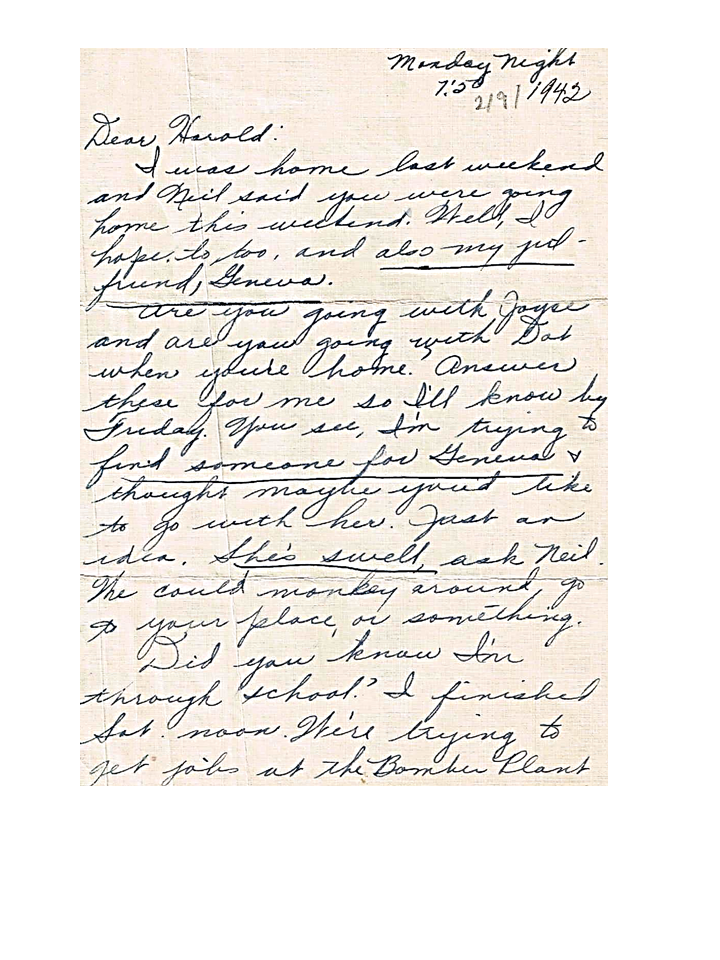 Monday Night
7:50
2/9/1942
Dear Harold:
I was home last weekend
and Neil said you were going
home this weekend. Well, I
hope to, too, and also my girl-
friend, Geneva.
Are you going with Joyce
and are you going with Dot
when you're home? Answer
these for me so I'll know by
Friday. You see, I'm trying to
find someone for Geneva &
thought maybe you'd like
to go with her. Just an
idea. She's swell, ask Neil.
We could monkey around, go
to your place, or something.
Did you know I'm
through school? I finished
Sat. noon. We're trying to
get jobs at the Bomber Plant